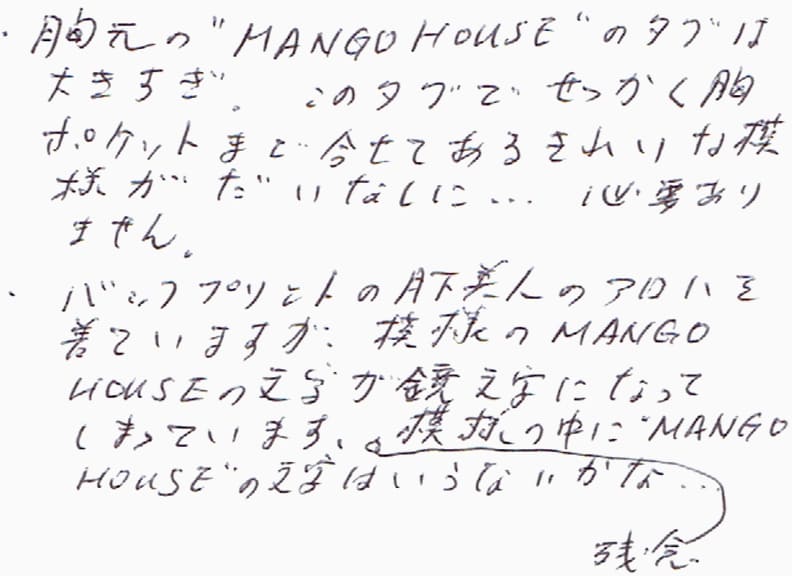 ・胸元の"MANGO HOUSE"のタブは
大きすぎ。このタブで せっかく胸
ポケットまで合せてあるきれいな模
様が だいなしに… 必要あり
ません。
・バックプリントの月下美人のアロハを
着ていますが、模様のMANGO
HOUSEの文字が鏡文字になって
しまっています、。模様の中に"MANGO
HOUSE"の文字はいらないかな…
残念